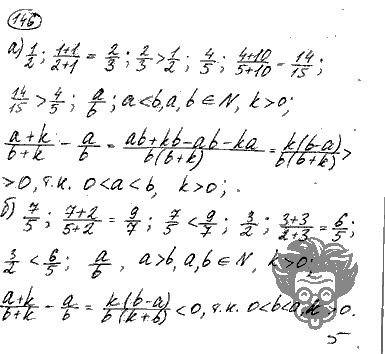 146
а) 1/2; (1+1)/(2+1) = 2/3; 2/3 > 1/2; 4/5; (4+10)/(5+10) = 14/15;
14/15 > 4/5; a/b; a<b, a, b ∈ N, k>0;
(a+k)/(b+k) - a/b = (ab+kb-ab-ka)/(b(b+k)) = k(b-a)/(b(b+k)) >
> 0, т.к. 0<a<b, k>0;
б) 7/5; (7+2)/(5+2) = 9/7; 7/5 < 9/7; 3/2; (3+3)/(2+3) = 6/5;
3/2 < 6/5; a/b, a>b, a, b ∈ N, k>0;
(a+k)/(b+k) - a/b = k(b-a)/(b(k+b)) < 0, т.к. 0<b<a, k>0.
5